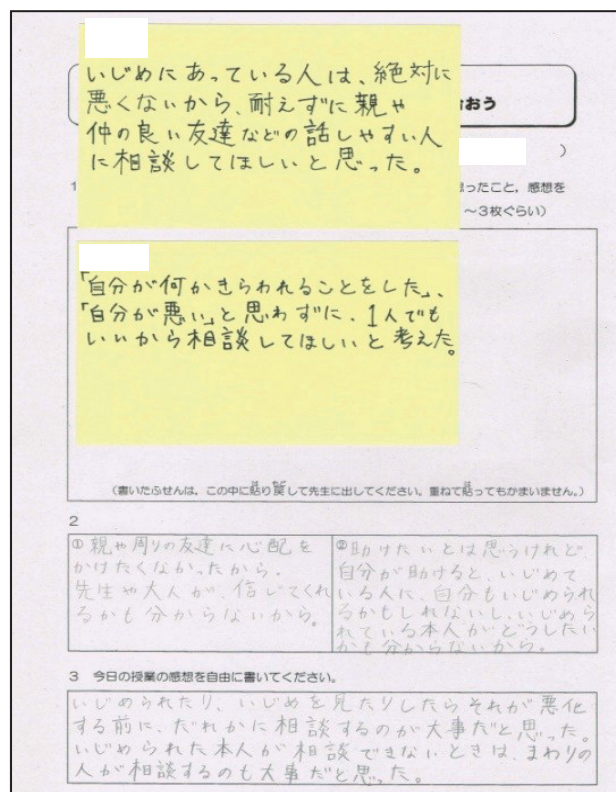 いじめにあっている人は、絶対に
悪くないから、耐えずに親や
仲の良い友達などの話しやすい人
に相談してほしいと思った。
おう
)
1
ったこと，感想を
～3枚ぐらい)
「自分が何かきらわれることをした」、
「自分が悪い」と思わずに、1人でも
いいから相談してほしいと考えた。
(書いたふせんは，この中に貼り戻して先生に出してください。重ねて貼ってもかまいません。)
2
①親や周りの友達に心配を
かけたくなかったから。
先生や大人が、信じてくれ
るかも分からないから。
②助けたいとは思うけれど、
自分が助けると、いじめて
いる人に、自分もいじめられ
るかもしれないし、いじめら
れている本人がどうしたい
かも分からないから。
3 今日の授業の感想を自由に書いてください。
いじめられたり、いじめを見たりしたらそれが悪化
する前に、だれかに相談するのが大事だと思った。
いじめられた本人が相談できないときは、まわりの
人が相談するのも大事だと思った。